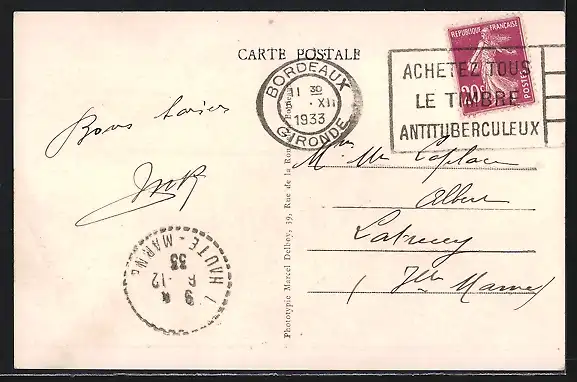 CARTE POSTALE
REPUBLIQUE FRANÇAISE
20c
POSTES
BORDEAUX
11 30
XII
1933
GIRONDE
ACHETEZ TOUS
LE TIMBRE
ANTITUBERCULEUX
Bons baisers
M. Mme Laplace
Albert
Latrecey
(Hte Marne)
HAUTE-MARNE
6 -12
33
Phototypie Marcel Delboy, 39, Rue de la